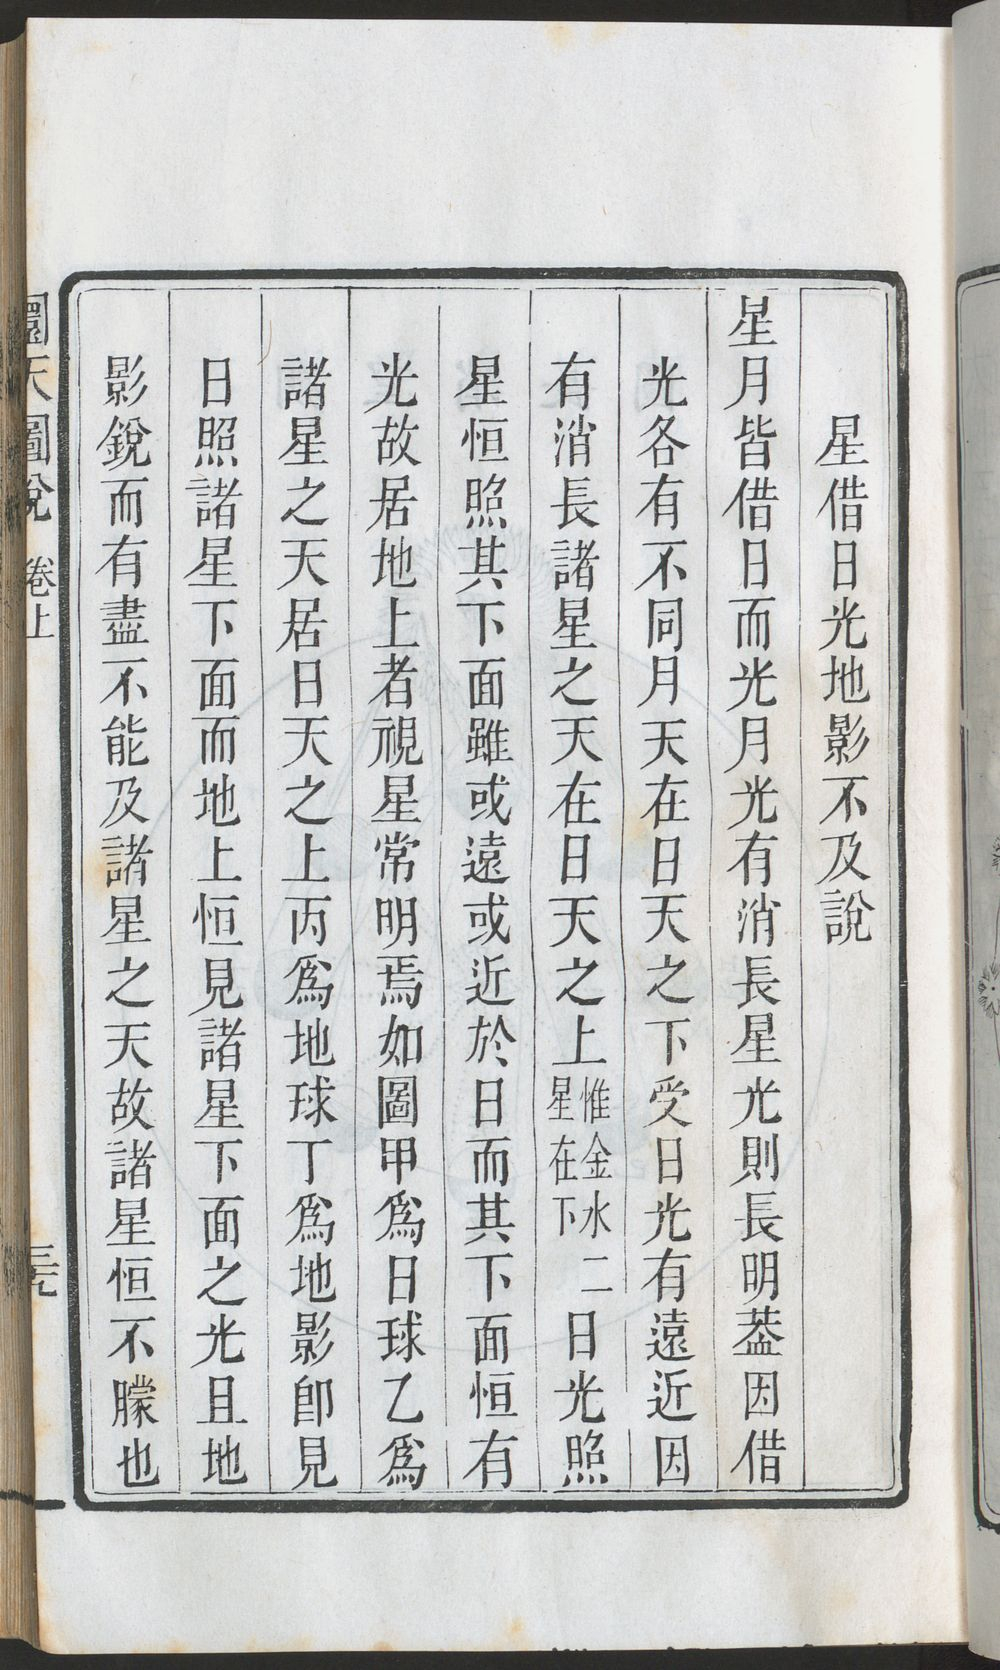 星借日光地影不及說
星月皆借日而光月光有消長星光則長明葢因借
光各有不同月天在日天之下受日光有遠近因
有消長諸星之天在日天之上惟金水二星在下日光照
星恒照其下面雖或遠或近於日而其下面恒有
光故居地上者視星常明焉如圖甲爲日球乙爲
諸星之天居日天之上丙爲地球丁爲地影卽見
日照諸星下面而地上恒見諸星下面之光且地
影銳而有盡不能及諸星之天故諸星恒不朦也
圜天圖說 卷上